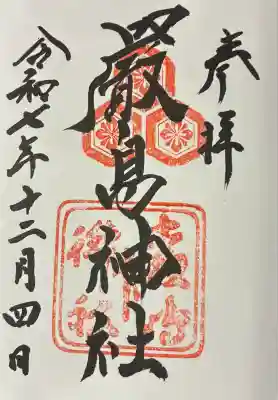 奉拝
嚴島神社
令和七年十二月四日